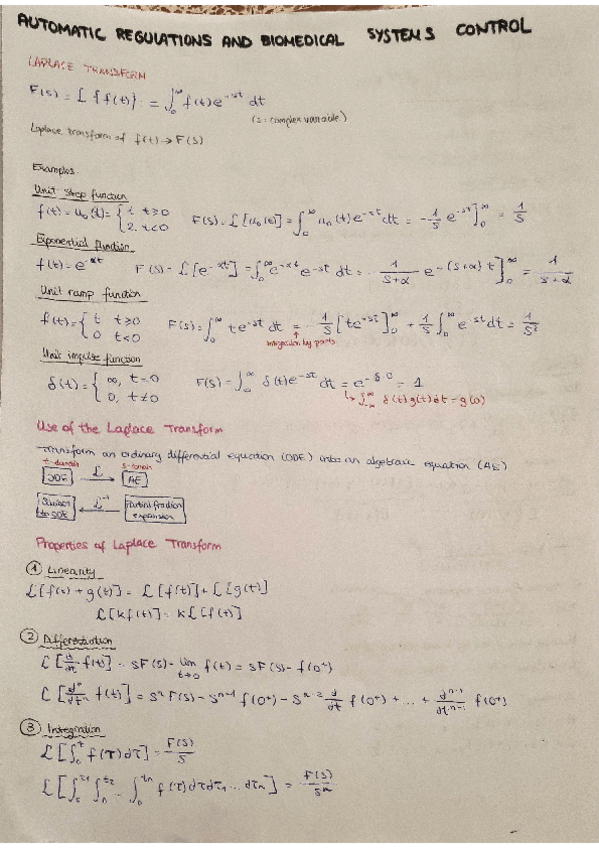 AUTOMATIC REGULATIONS AND BIOMEDICAL SYSTEMS CONTROL
LAPLACE TRANSFORM
F(s) = ℒ{f(t)} = ∫₀^∞ f(t)e^-st dt
(s: complex variable)
Laplace transform of f(t) → F(s)
Examples
Unit step function
f(t) = u₀(t) = { 1, t≥0 F(s) = ℒ[u₀(t)] = ∫₀^∞ u₀(t)e^-st dt = -1/s e^-st]₀^∞ = 1/s
2, t<0
Exponential function
f(t) = e^-αt F(s) = ℒ[e^-αt] = ∫₀^∞ e^-αt e^-st dt = - 1/(s+α) e^-(s+α)t]₀^∞ = 1/(s+α)
Unit ramp function
f(t) = { t t≥0 F(s) = ∫₀^∞ te^-st dt = -1/s [te^-st]₀^∞ + 1/s ∫₀^∞ e^-st dt = 1/s²
0 t<0
integration by parts
Unit impulse function
δ(t) = { ∞, t=0 F(s) = ∫₀^∞ δ(t)e^-st dt = e^-s·0 = 1
0, t≠0
↳ ∫_-∞^∞ δ(t)g(t)dt = g(0)
Use of the Laplace Transform
Transform an ordinary differential equation (ODE) into an algebraic equation (AE)
t-domain s-domain
ODE ℒ→ AE
Solution to ODE ←ℒ⁻¹ Partial fraction expansion
Properties of Laplace Transform
① Linearity
ℒ[f(t) + g(t)] = ℒ[f(t)] + ℒ[g(t)]
ℒ[kf(t)] = kℒ[f(t)]
② Differentiation
ℒ[d/dt f(t)] = sF(s) - lim t→0 f(t) = sF(s) - f(0⁺)
ℒ[dⁿ/dtⁿ f(t)] = sⁿF(s) - sⁿ⁻¹ f(0⁺) - sⁿ⁻² d/dt f(0⁺) + ... + dⁿ⁻¹/dtⁿ⁻¹ f(0⁺)
③ Integration
ℒ[∫₀^t f(τ)dτ] = F(s)/s
f(τ)dτdτ₁...dτn] = F(s)/sⁿ